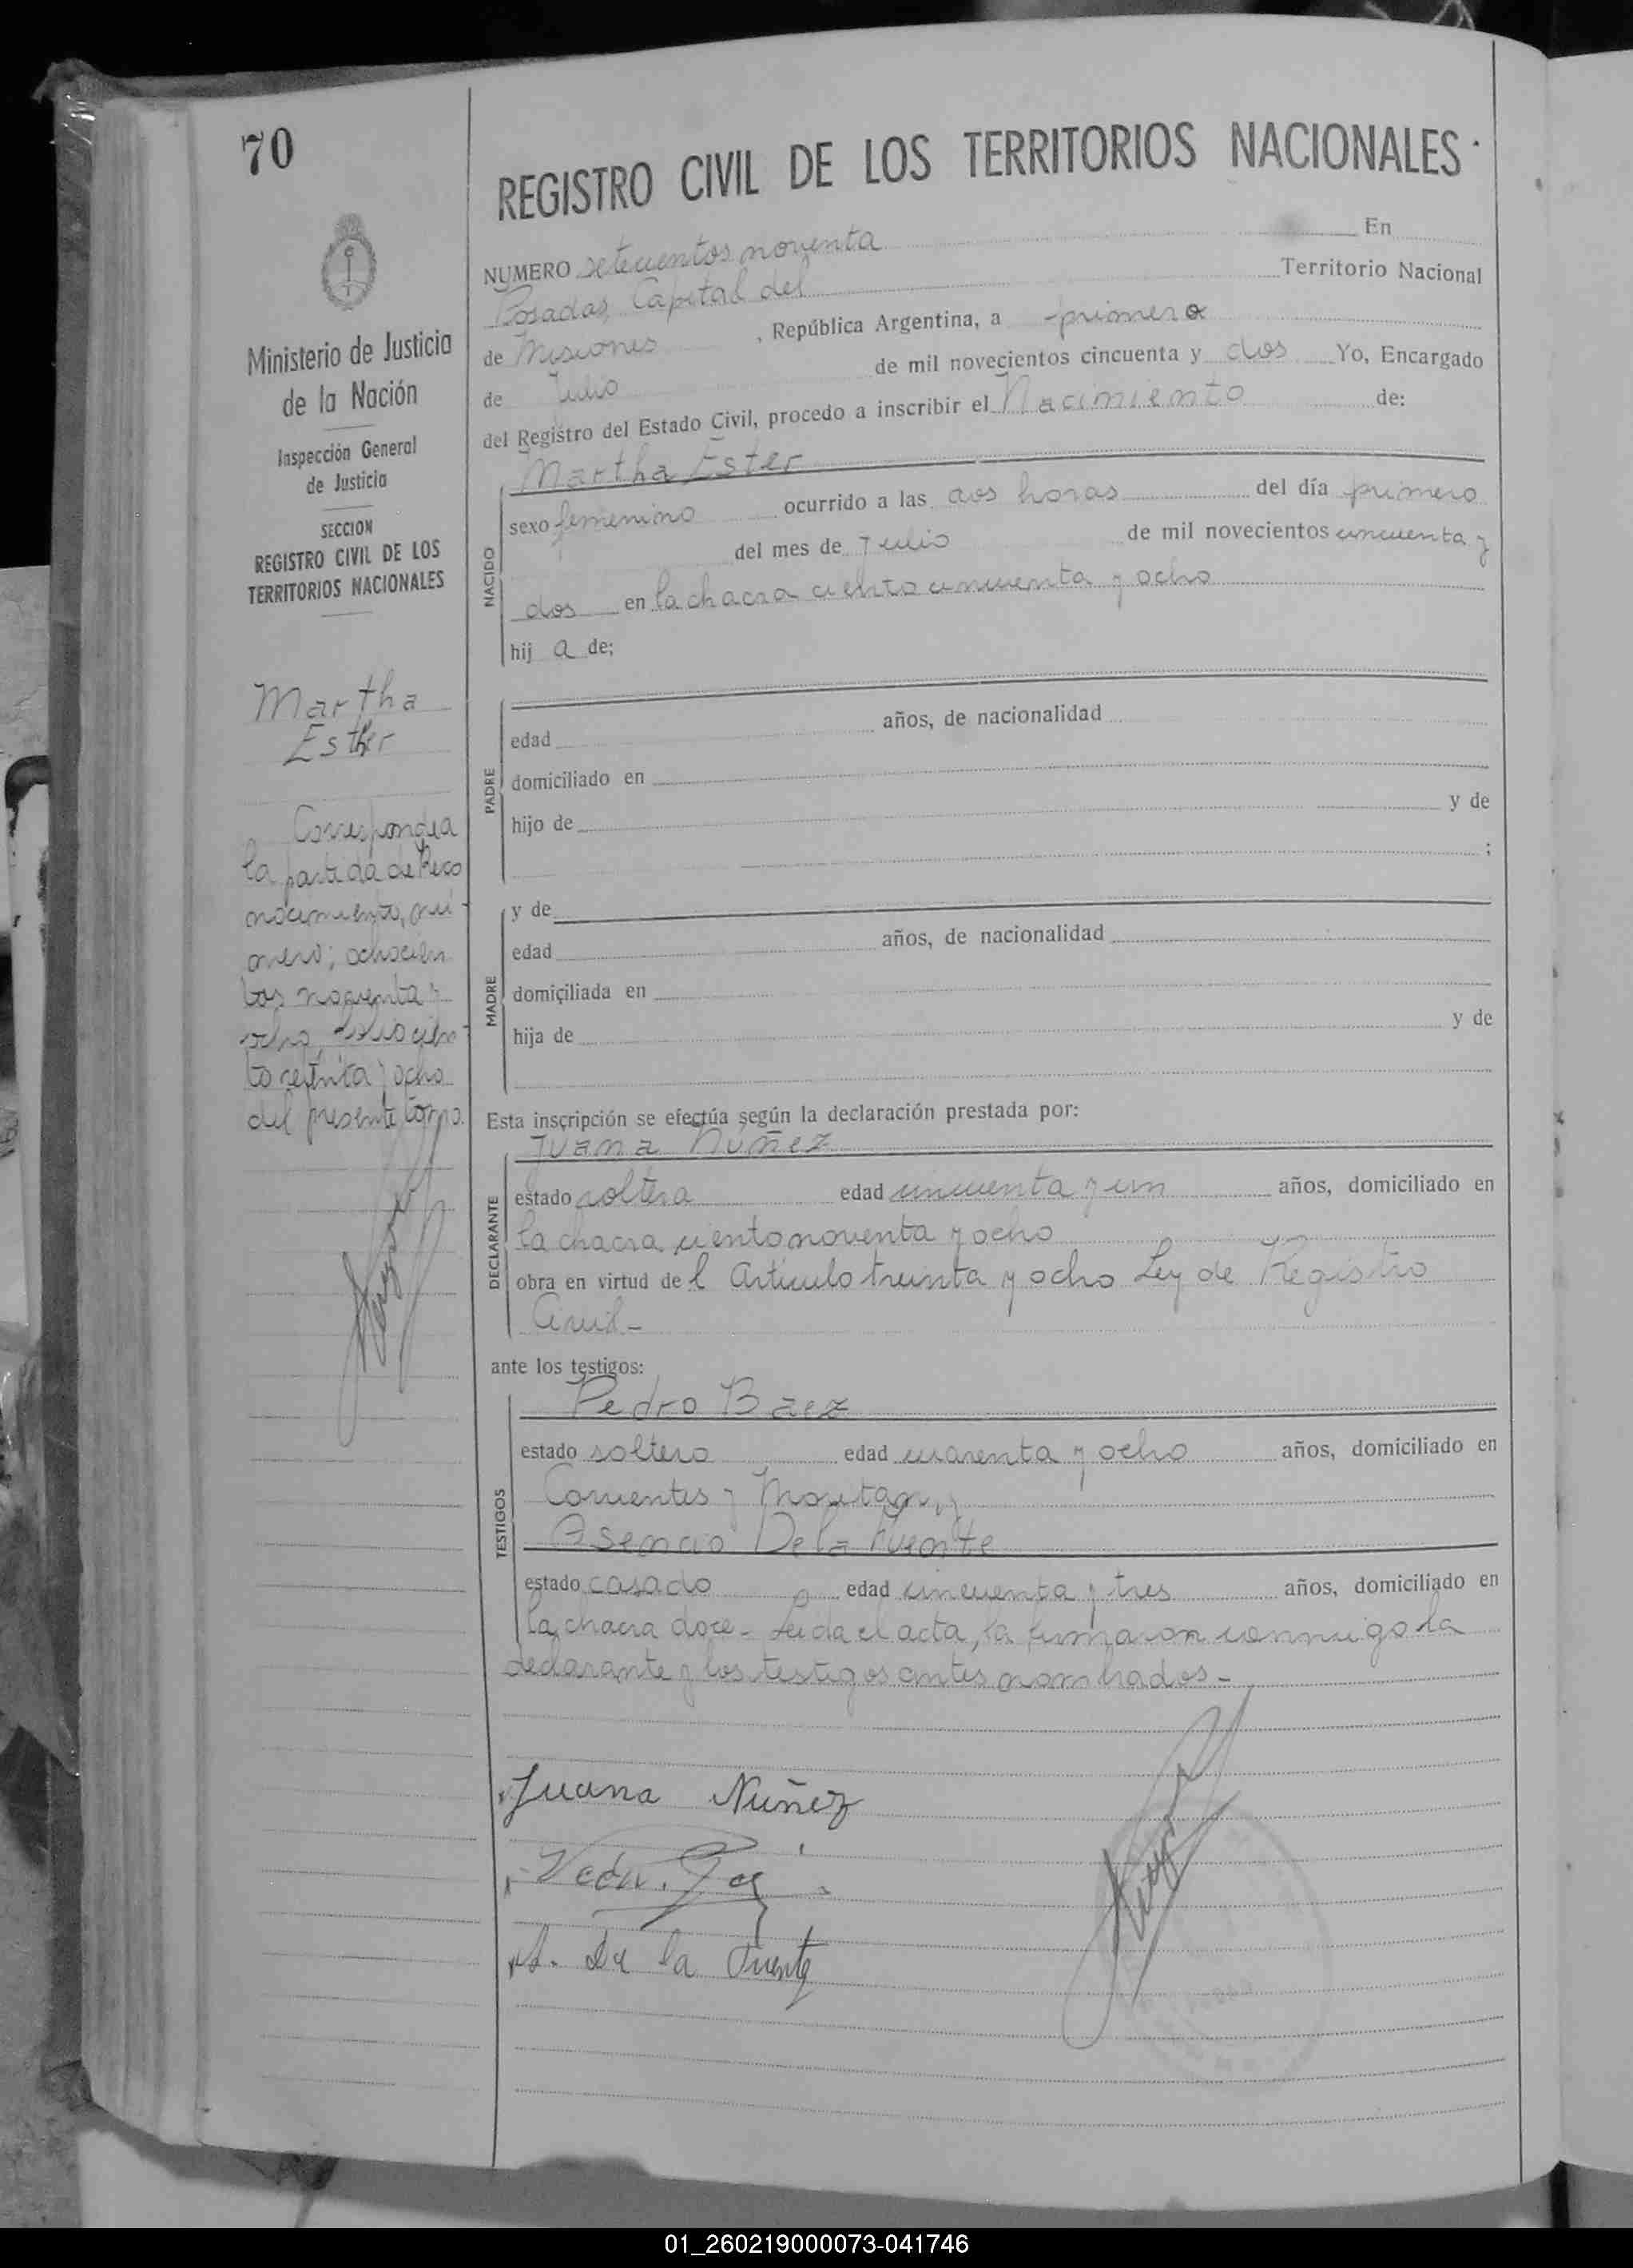 70
Ministerio de Justicia
de la Nación
Inspección General
de Justicia
SECCION
REGISTRO CIVIL DE LOS
TERRITORIOS NACIONALES
Martha
Esther
Corresponde a
la partida de Reco
nocimiento, nú-
mero; ochocien
tos noventa y
ocho, folio cien-
to setenta y ocho
del presente tomo.
REGISTRO CIVIL DE LOS TERRITORIOS NACIONALES
NUMERO setecientos noventa En
Posadas, Capital del Territorio Nacional
de Misiones, República Argentina, a primero
de Julio de mil novecientos cincuenta y dos Yo, Encargado
del Registro del Estado Civil, procedo a inscribir el Nacimiento de:
Martha Ester
NACIDO
sexo femenino ocurrido a las dos horas del día primero
del mes de Julio de mil novecientos cincuenta y
dos en la chacra ciento cincuenta y ocho
hij a de;
PADRE
edad años, de nacionalidad
domiciliado en
hijo de y de
;
MADRE
y de
edad años, de nacionalidad
domiciliada en
hija de y de
Esta inscripción se efectúa según la declaración prestada por:
Juana Nuñez
DECLARANTE
estado soltera edad cincuenta y un años, domiciliado en
la chacra ciento noventa y ocho
obra en virtud de l Artículo treinta y ocho Ley de Registro
Civil-
ante los testigos:
Pedro Baez
TESTIGOS
estado soltero edad cuarenta y ocho años, domiciliado en
Corrientes y
Asencio De la Fuente
estado casado edad cincuenta y tres años, domiciliado en
la chacra doce- Leida el acta, la firmaron conmigo la
declarante y los testigos antes nombrados-
Juana Nuñez
A. De la Fuente
01_260219000073-041746